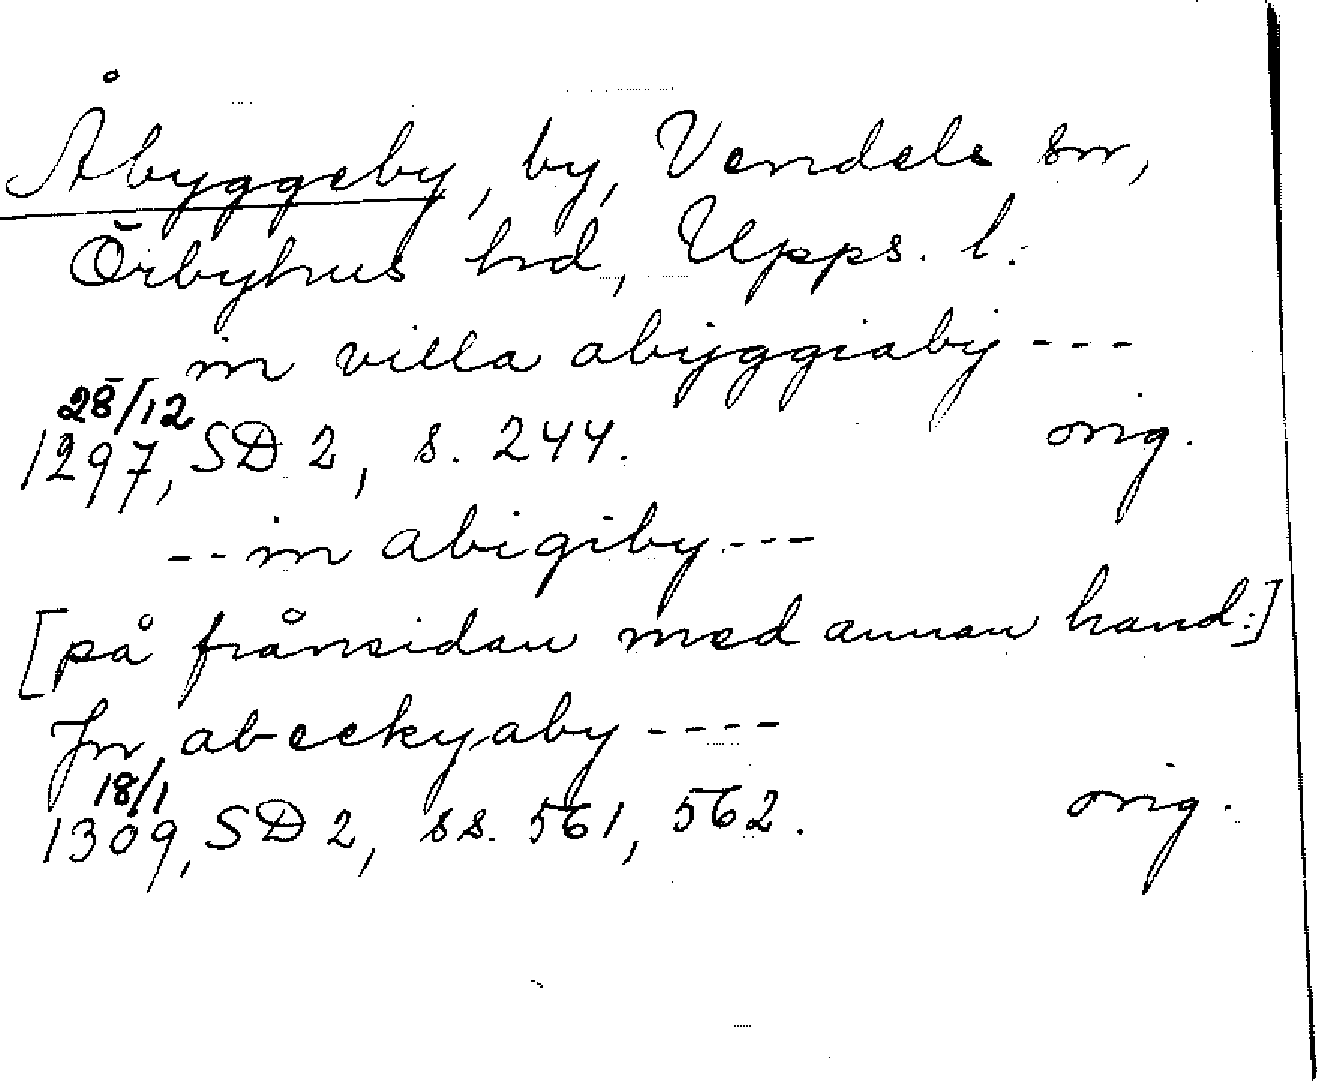 Åbyggeby, by, Vendels sn,
Örbyhus hd, Upps. l.
in villa abyggiaby - - -
28/12
1297, SD 2, s. 244. orig.
- - in abigiby - - -
[på frånsidan med annan hand:]
Jn abeckyaby - - - -
18/1
1309, SD 2, ss. 561, 562. orig.